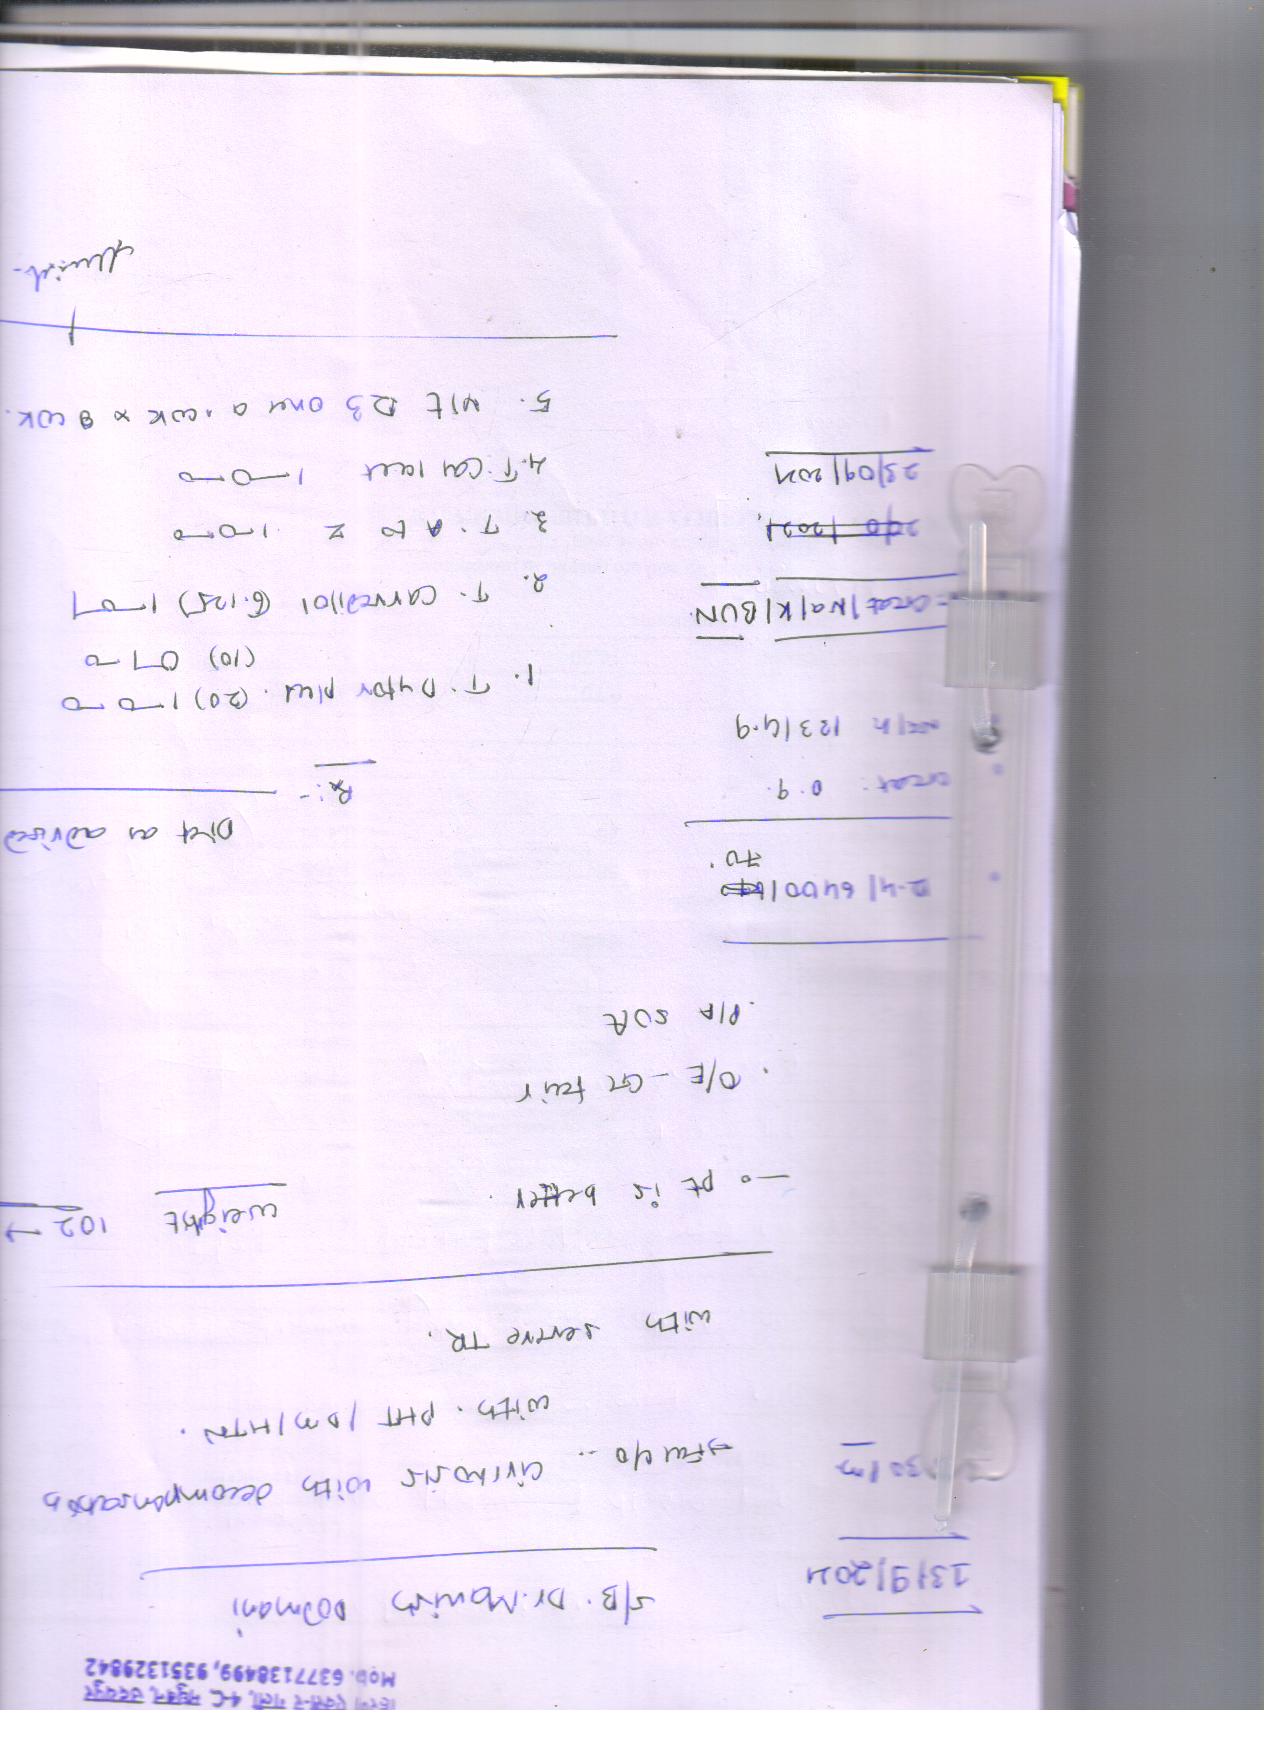 Mob. 6377138499, 9351329842
S/B. Dr. Manish Dodmani
13/9/2024
30/m
→ Fu c/o .. cirrhosis with decompensation
with . PHT / DM / HTN .
with severe TR .
weight 102 →
— pt is better .
. O/E - GC fair
P/A SOFT
2.4 / 6400 /
70 .
Diet as advised
Rx :-
creat : 0.9 .
na/k 123 / 4.9
1. T. Dytor plus . (20) 1—0—0
(10) 0—1—0
2. T. carvedilol (6.125) 1—0—1
creat / Na / K / BUN .
3. T. A to Z 1—0—0
4. T. 1—0—0
23/09/2024
5. vit D3 once a . wk x 8 wk .